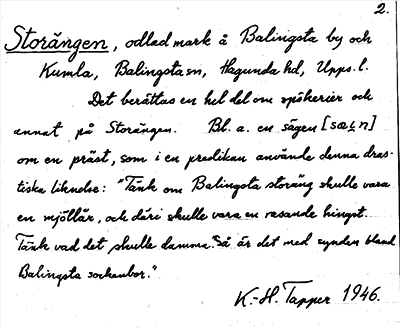 2.
Storängen, odlad mark å Balingsta by och
Kumla, Balingsta sn, Hagunda hd, Upps. l.
Det berättas en hel del om spökerier och
annat på Storängen. Bl. a. en sägen
om en präst, som i en predikan använde denna dras-
tiska liknelse: "Tänk om Balingsta storäng skulle vara
en mjöllår, och däri skulle vara en rasande hingst.
Tänk vad det skulle damma. Så är det med synden bland
Balingsta sockenbor."
K.-H. Tapper 1946.